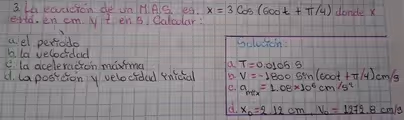 3. La ecuación de un M.A.S. es. x = 3 Cos (600t + π/4) donde x
está. en cm. y t en s. Calcular:
a. el periodo
b. la velocidad
c. la aceleración máxima
d. La posición y velocidad inicial
Solución:
a. T = 0.0105 s
b. V = -1800 Sin (600t + π/4) cm/s
c. a max = 1.08x10⁶ cm/s²
d. x₀ = 2.12 cm, V₀ = 1272.8 cm/s